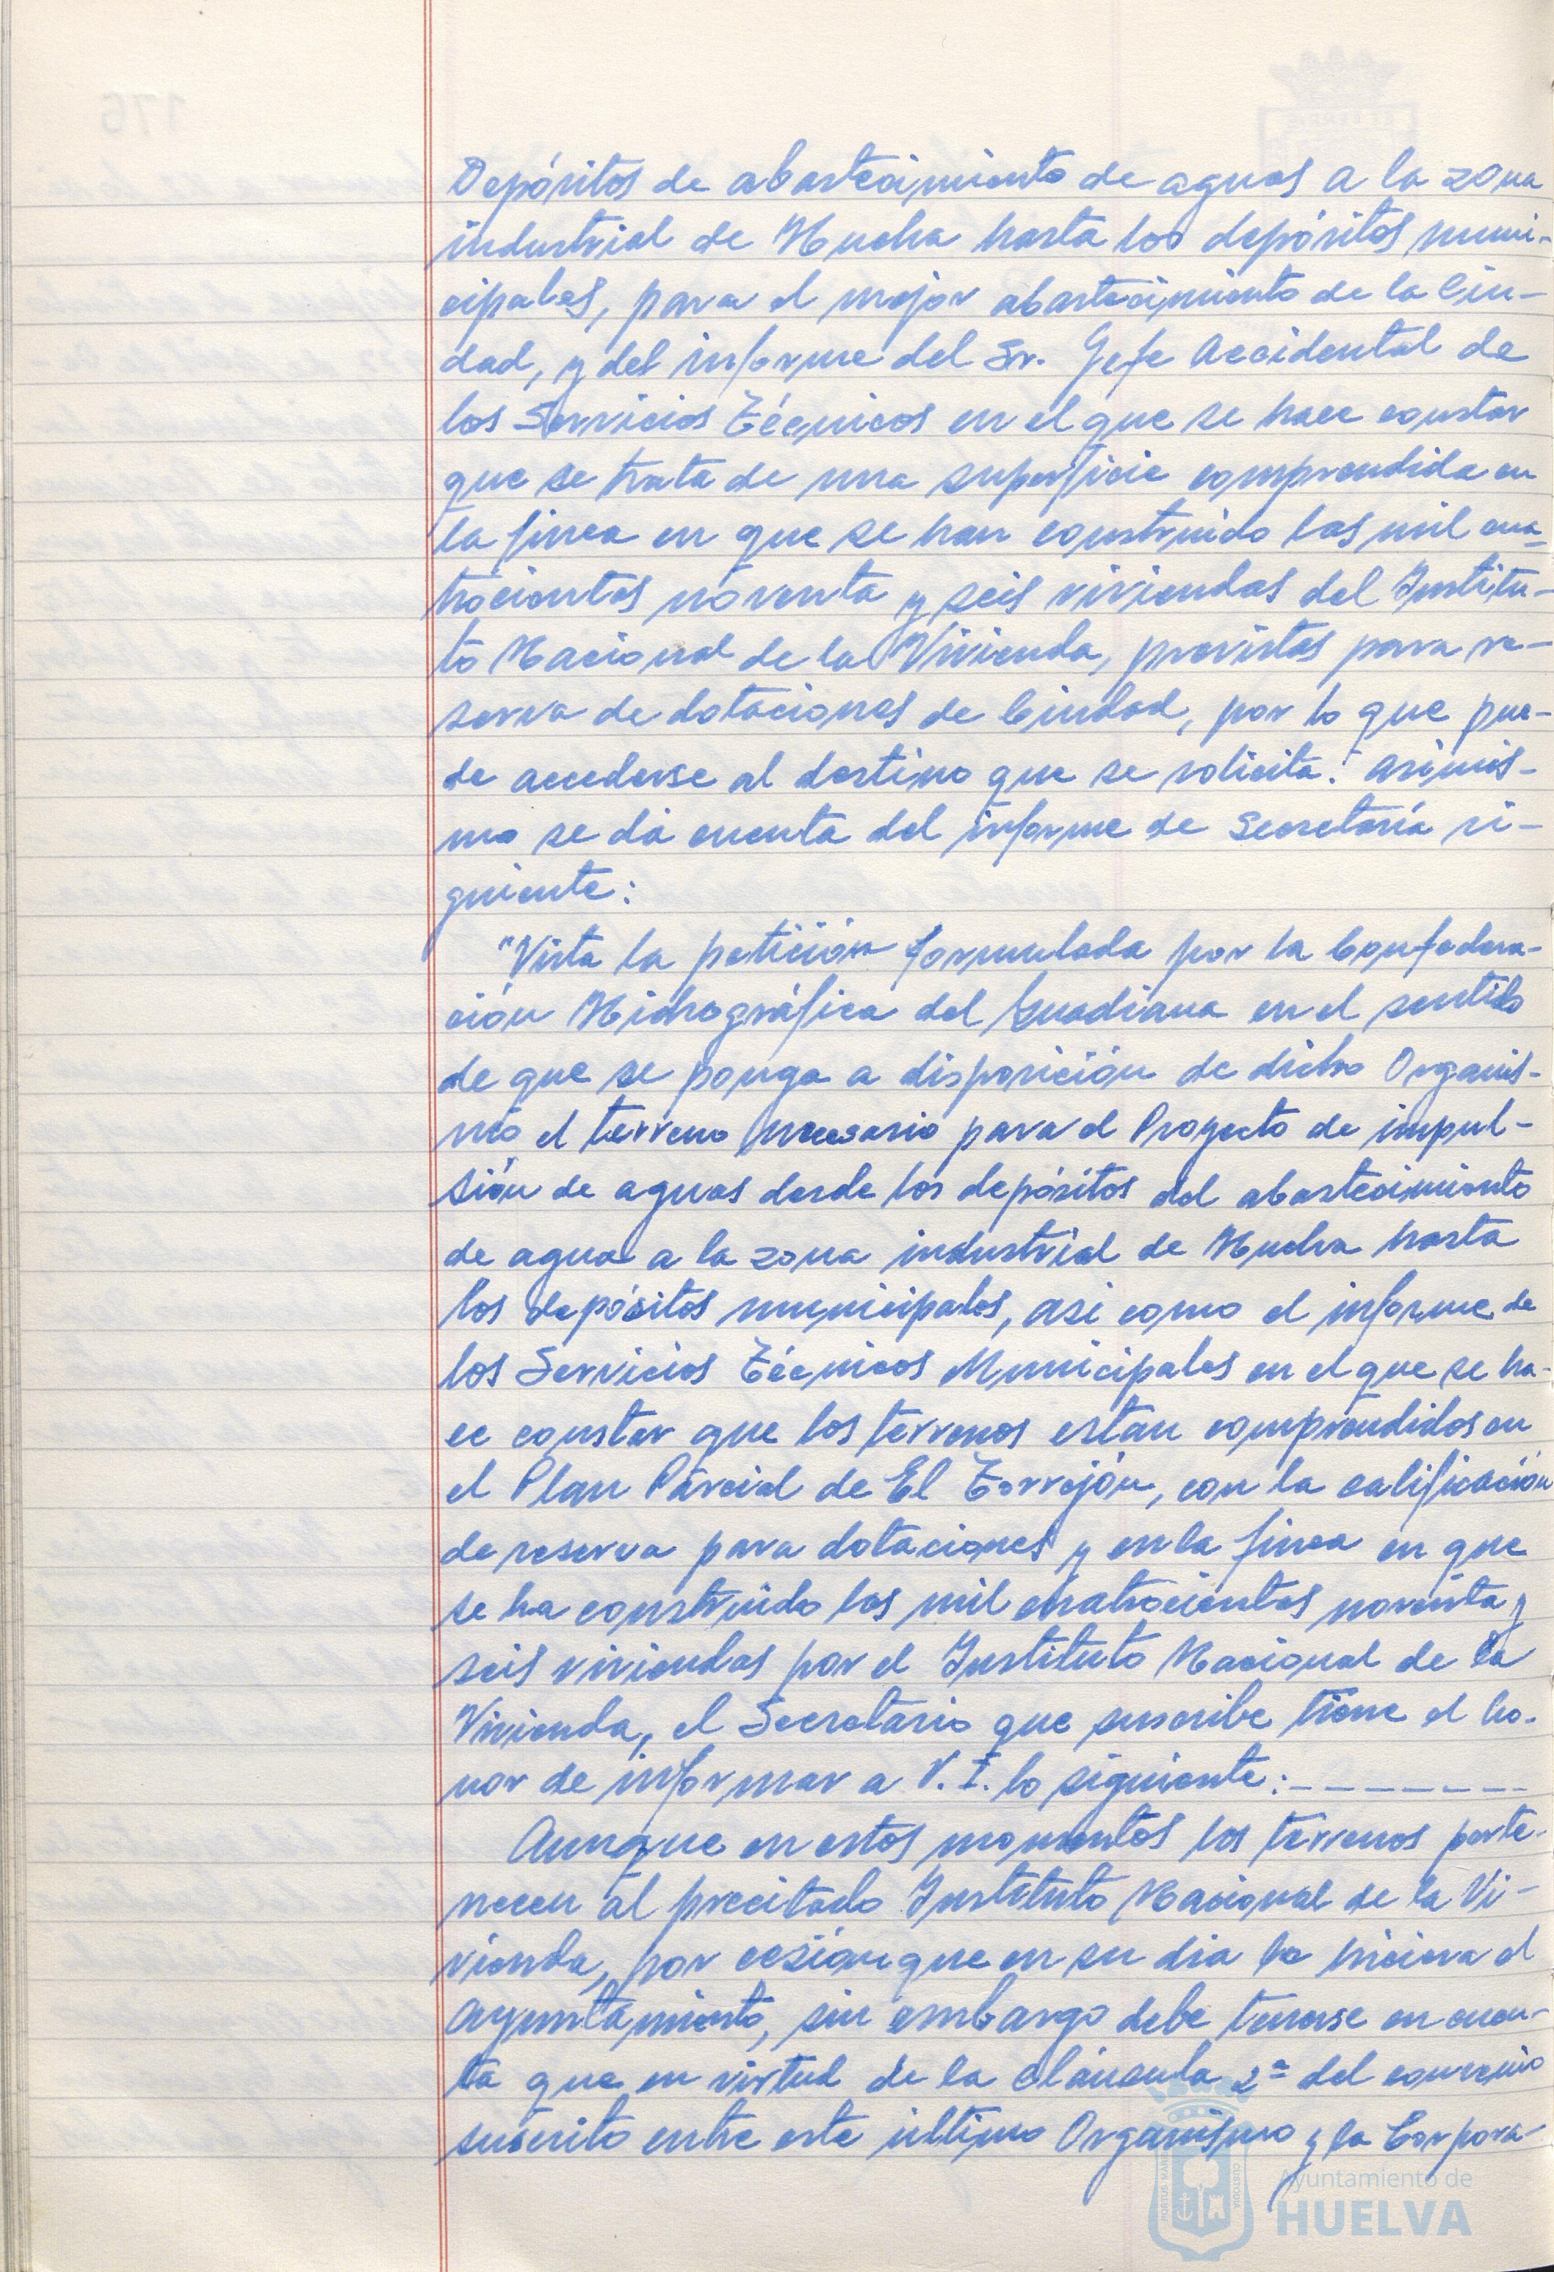 Depósitos de abastecimiento de aguas a la zona
industrial de Huelva hasta los depósitos muni-
cipales, para el mejor abastecimiento de la Ciu-
dad, y del informe del Sr. Jefe Accidental de
los Servicios Técnicos en el que se hace constar
que se trata de una superficie comprendida en
la finca en que se han construido las mil cua-
trocientas noventa y seis viviendas del Institu-
to Nacional de la Vivienda, previstas para re-
serva de dotaciones de Ciudad, por lo que pue-
de accederse al destino que se solicita. Asimis-
mo se dá cuenta del informe de Secretaría si-
guiente:
"Vista la petición formulada por la Confedera-
ción Hidrográfica del Guadiana en el sentido
de que se ponga a disposición de dicho Organis-
mo el terreno necesario para el Proyecto de impul-
sión de aguas desde los depósitos del abastecimiento
de agua a la zona industrial de Huelva hasta
los depósitos municipales, asi como el informe de
los Servicios Técnicos Municipales en el que se ha-
ce constar que los terrenos estan comprendidos en
el Plan Parcial de El Torrejón, con la calificación
de reserva para dotaciones y en la finca en que
se ha construido las mil cuatrocientas noventa y
seis viviendas por el Instituto Nacional de la
Vivienda, el Secretario que suscribe tiene el ho-
nor de informar a V. I. lo siguiente:- - - - - - - -
Aunque en estos momentos los terrenos perte-
necen al precitado Instituto Nacional de la Vi-
vienda, por cesión que en su dia le hiciera el
Ayuntamiento, sin embargo debe tenerse en cuen-
ta que en virtud de la cláusula 2ª del convenio
suscrito entre este último Organismo y la Corpora-
PORTUS MARIS CUSTODIA
Ayuntamiento de
HUELVA